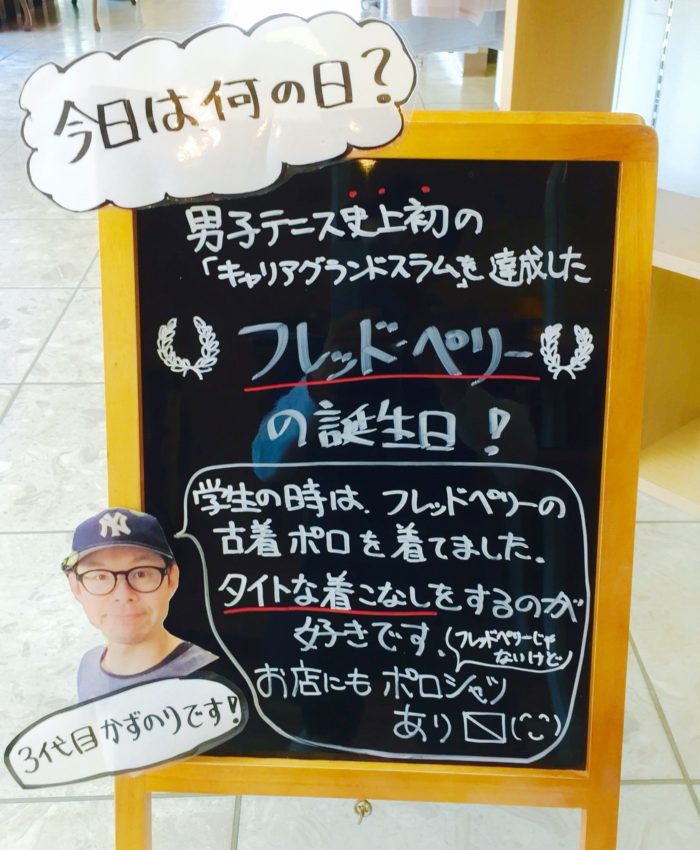 今日は何の日？
男子テニス史上初の
「キャリアグランドスラム」を達成した
フレッド・ペリー
の誕生日！
学生の時は、フレッドペリーの
古着ポロを着てました。
タイトな着こなしをするのが
好きです、(フレッドペリーじゃ
ないけど)
お店にもポロシャツ
あり〼(¨)
NY
3代目かずのりです！